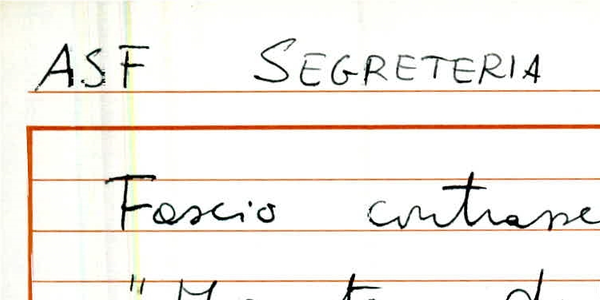 ASF SEGRETERIA
Fascio contrasse